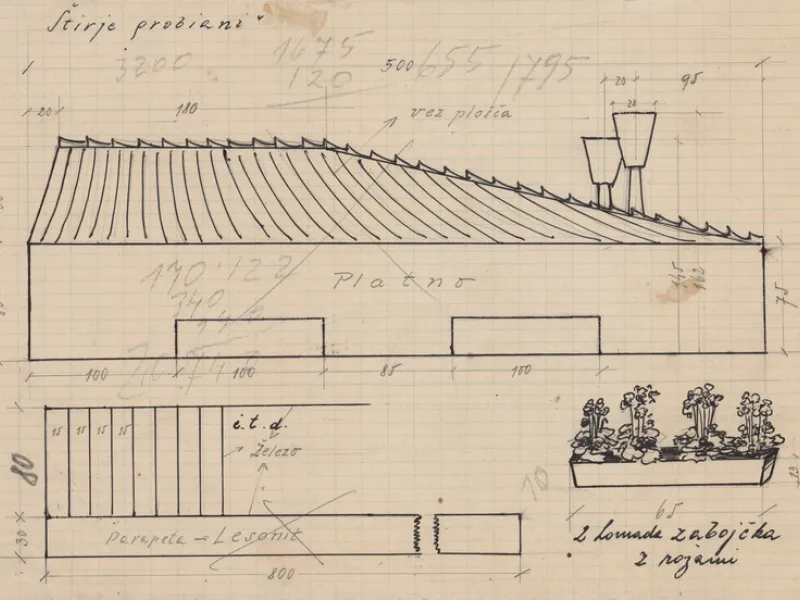 Štirje probiani
3200
1675
120
500
655
1795
20
95
20
180
vez plošča
28
170·122
340
Platno
145
162
75
100
100
85
100
15 15 15 15
i.t.d.
železo
80
30
70
parapeta – Lesonit
800
65
13
2 lomada zabojčka
z rožami